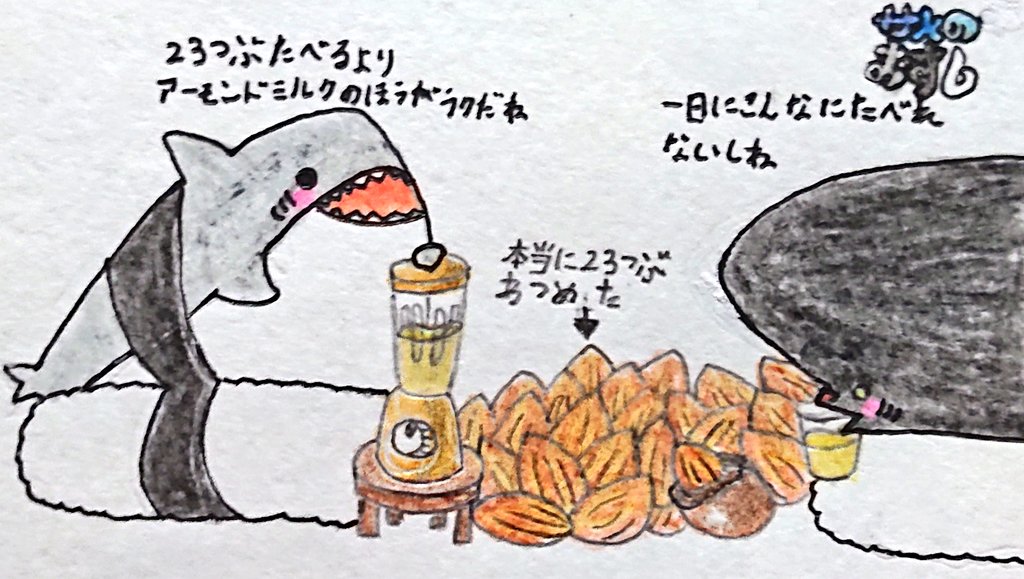 23つぶたべるより
アーモンドミルクのほうがラクだね
サメの
おすし
一日にこんなにたべれ
ないしね
本当に23つぶ
あつめた